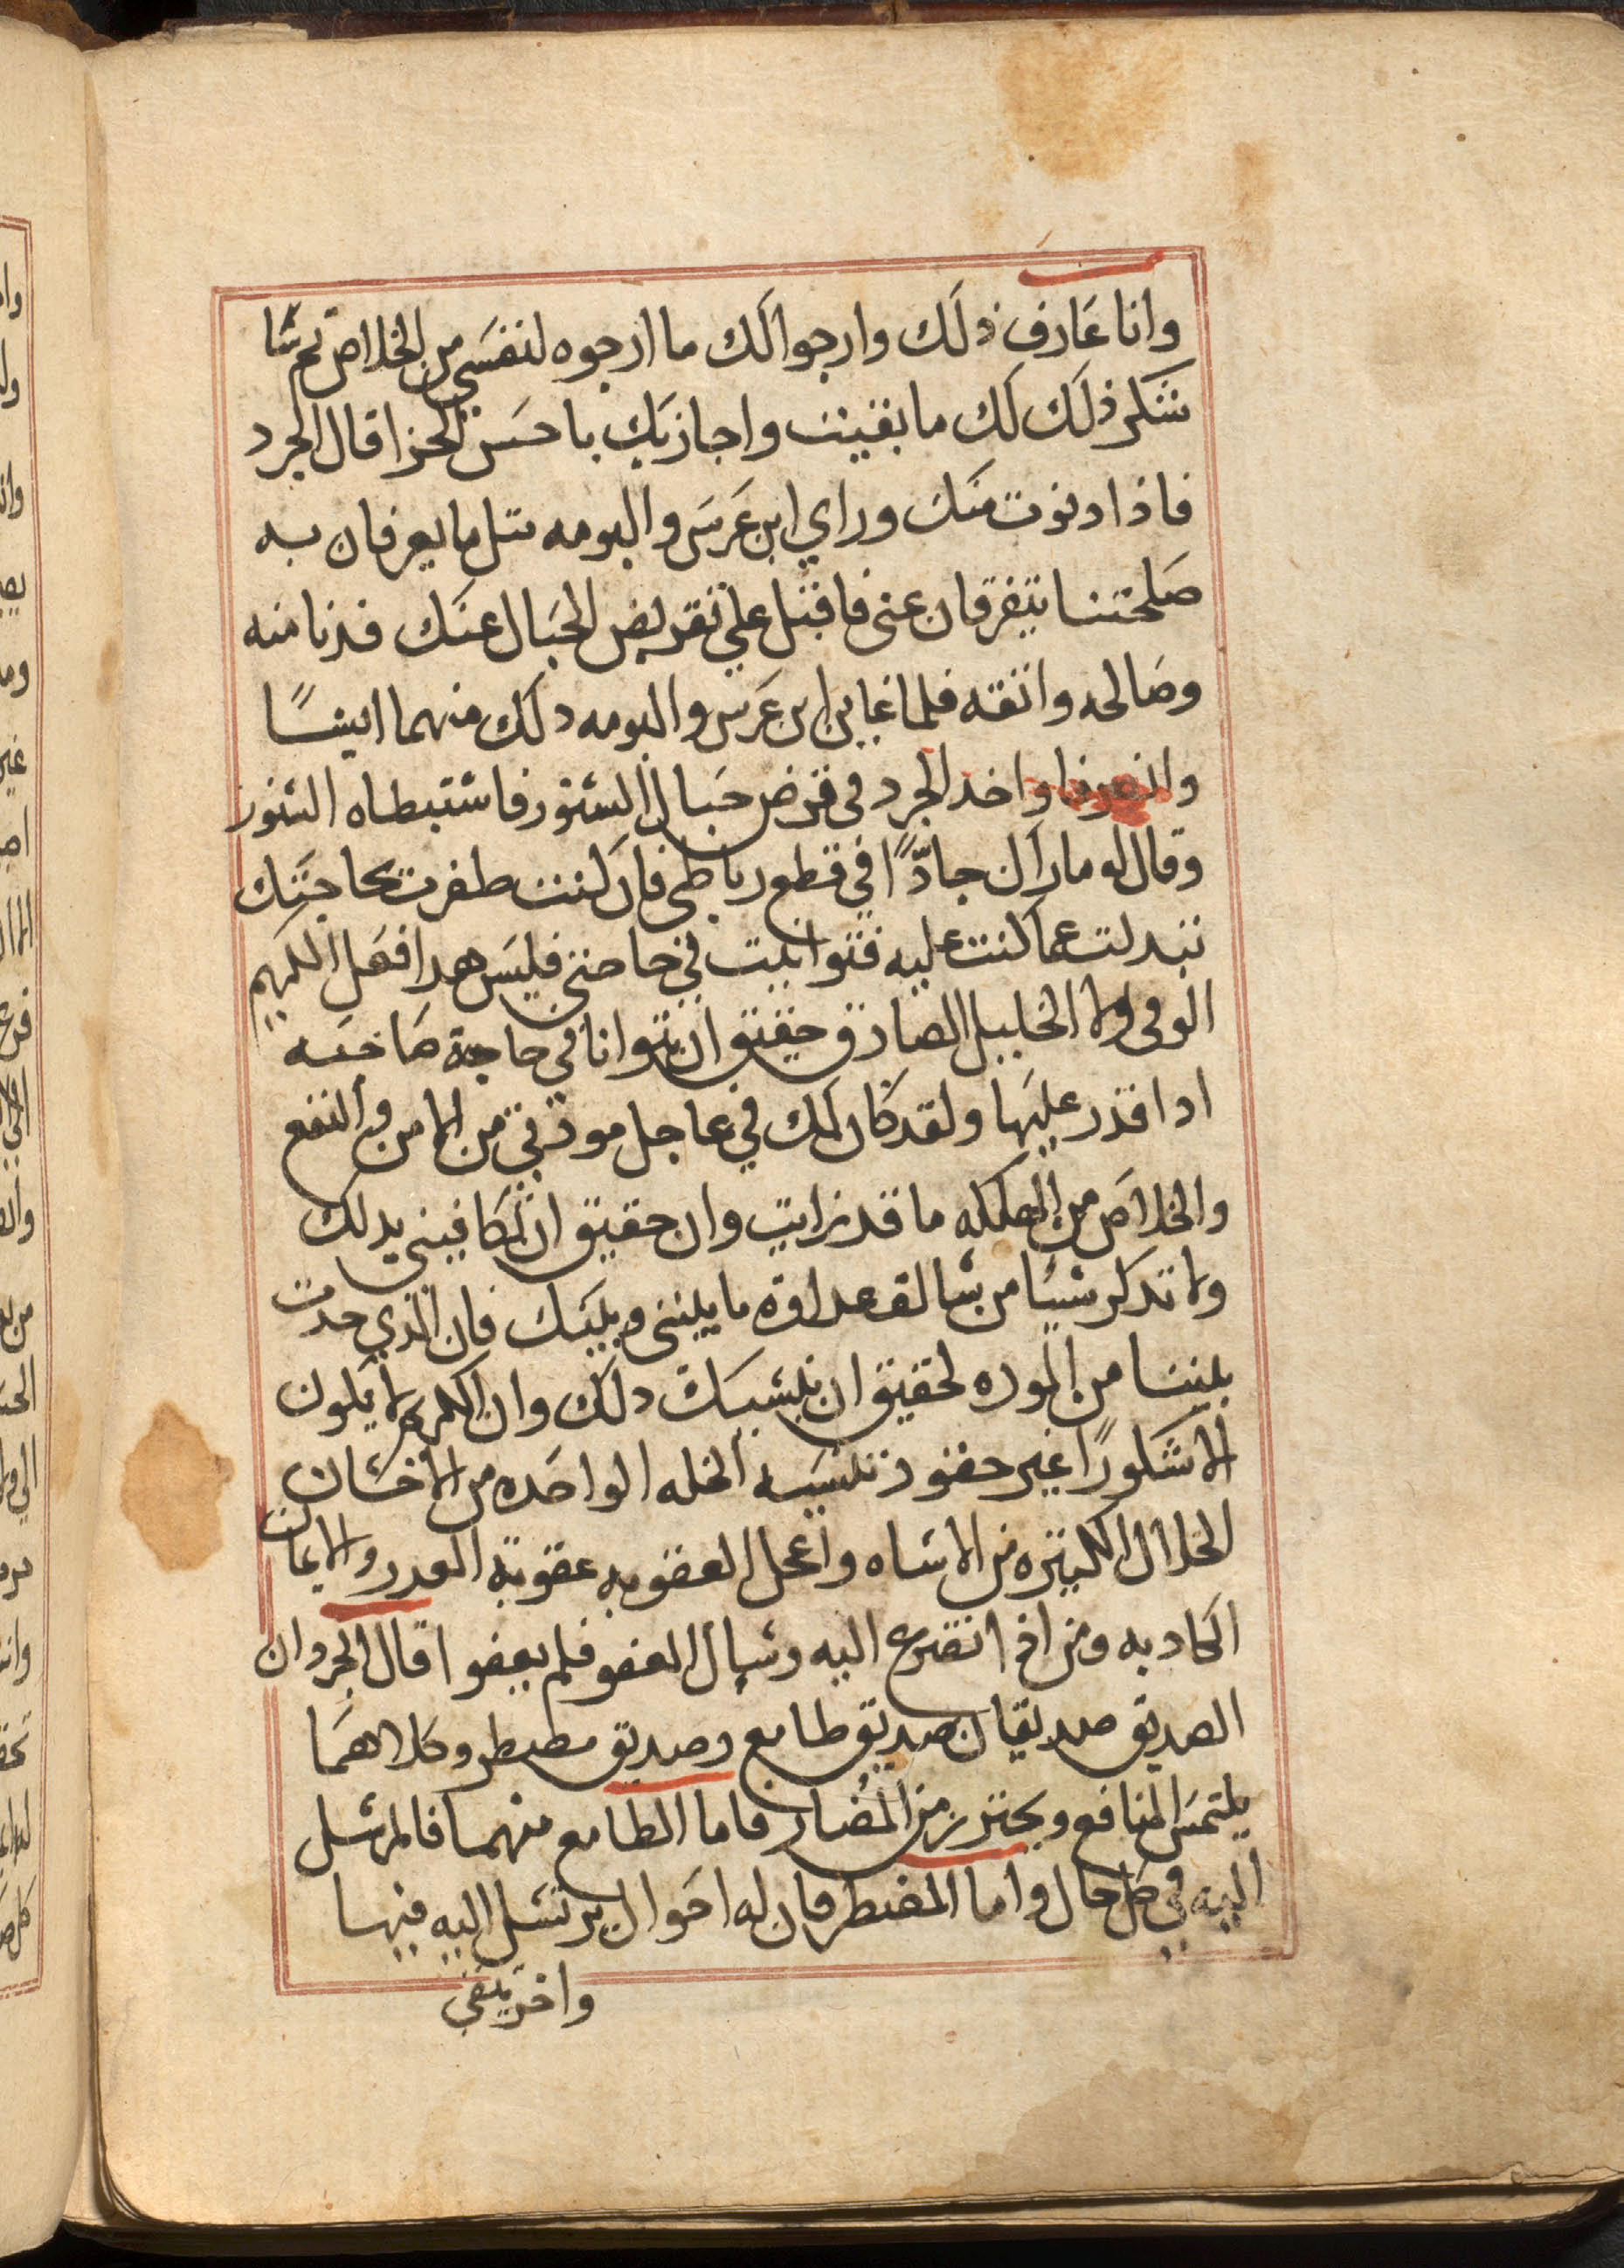 وانا عارف ذلك وارجوا لك ما ارجوه لنفسي من الخلاص ثم شا
شكر ذلك لك ما بقيت واجازيك باحسن الجزا قال الجرد
فاذا دنوت منك وراي ابن عرس والبومه مثل ما يعرفان به
صلحتنا يتفرقان عني فاقبل علي تقريض الحبال عنك فدنا منه
وصالحه واثقه فلما عاين ابن عرس والبومه دلك منهما ايسًا
وانصرفا واخد الجرد في قرض حبال السنور فاستبطاه السنور
وقال له ما اراك جادًّا في قطع رباطي فان كنت ظفرت بحاجتك
تبدلت عما كنت عليه فتوانيت في حاجتي فليس هدا فعل الكريم
الوفي ولا الخليل الصادق حقيق ان يتوانا في حاجة صاحبه
ادا قدر عليها ولقد كان لك في عاجل مودتي من الامن والنفع
والخلاص من الهلكه ما قد رايت وان حقيق ان تكافيني بدلك
ولا تدكر شيئا من سالف عداوة ما بيني وبينك فان الذي حدث
بيننا من الموده لحقيق ان ينسيك دلك وان الكريم لا يكون
الا شكورًا غير حقود تنسيه الخله الواحده من الاحسان
الخلال الكثيره من الاساه واعجل العقوبه عقوبة الغدر والايمان
الكادبه ومن ادا تضرع اليه وسال العفو فلم يعفوا قال الجرد ان
الصديق صديقان صديق طامع وصديق مضطر وكلاهما
يلتمس المنافع ويحترز من المضار فاما الطامع منهما فالمرسل
اليه في كل حال واما المضطر فان له احوال يرتسل اليه فيها
واخر يتقي